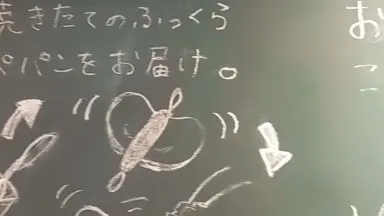 焼きたてのふっくら
パンをお届け。
お
こ